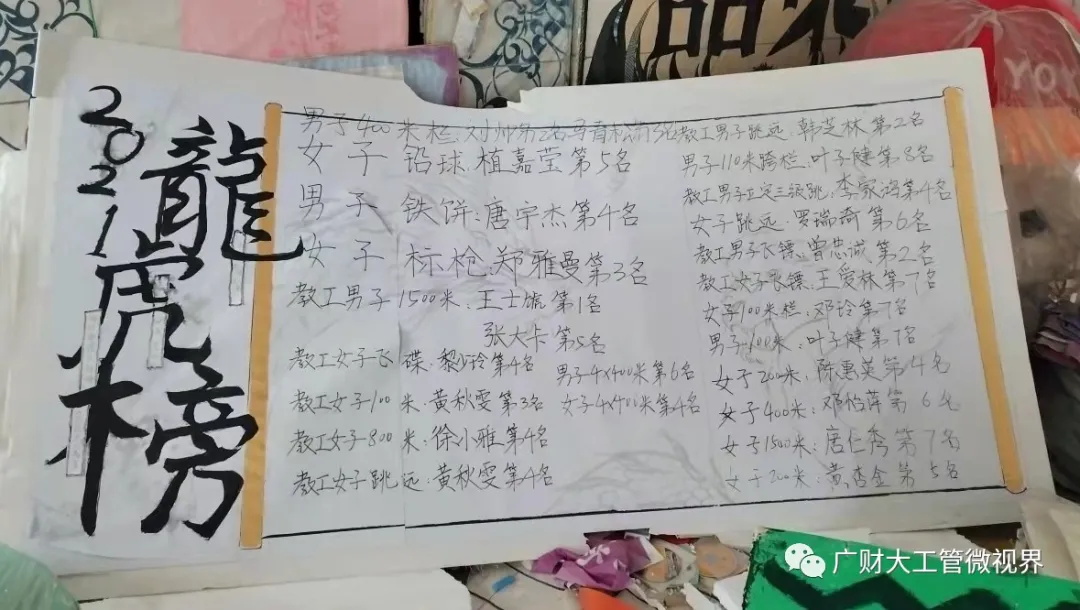 2021
龍虎榜
男子400米栏:刘帅第2名马青松第3名
女子铅球:植嘉莹第5名
男子铁饼:唐宇杰第4名
女子标枪:郑雅曼第3名
教工男子1500米:王士虎第1名
张大卡第5名
教工女子飞碟:黎少玲第4名
教工女子100米:黄秋雯第3名
教工女子800米:徐小雅第4名
教工女子跳远:黄秋雯第4名
男子4x400米第6名
女子4x400米第4名
教工男子跳远:韩芝林第2名
男子110米跨栏:叶子健第8名
教工男子立定三级跳:李家鸿第4名
女子跳远:罗瑞奇第6名
教工男子飞镖:曾忠诚第2名
教工女子飞镖:王爱林第7名
女子100米栏:邓玲第7名
男子100米:叶子健第7名
女子200米:陈惠英第4名
女子400米:邓怡萍第6名
女子1500米:唐仁秀第7名
女子200米:黄杏金第5名
YO
广财大工管微视界